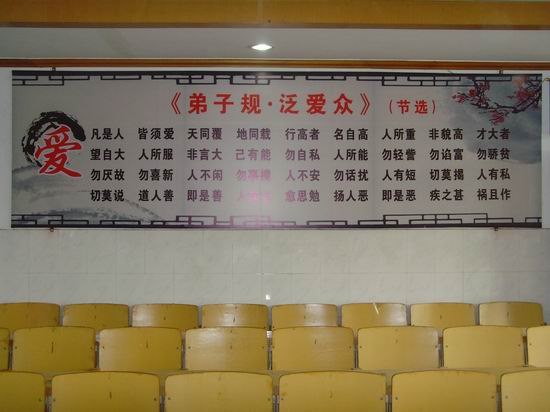 《弟子规·泛爱众》（节选）
爱
凡是人 皆须爱 天同覆 地同载 行高者 名自高 人所重 非貌高 才大者
望自大 人所服 非言大 己有能 勿自私 人所能 勿轻訾 勿谄富 勿骄贫
勿厌故 勿喜新 人不闲 勿事搅 人不安 勿话扰 人有短 切莫揭 人有私
切莫说 道人善 即是善 人 愈思勉 扬人恶 即是恶 疾之甚 祸且作